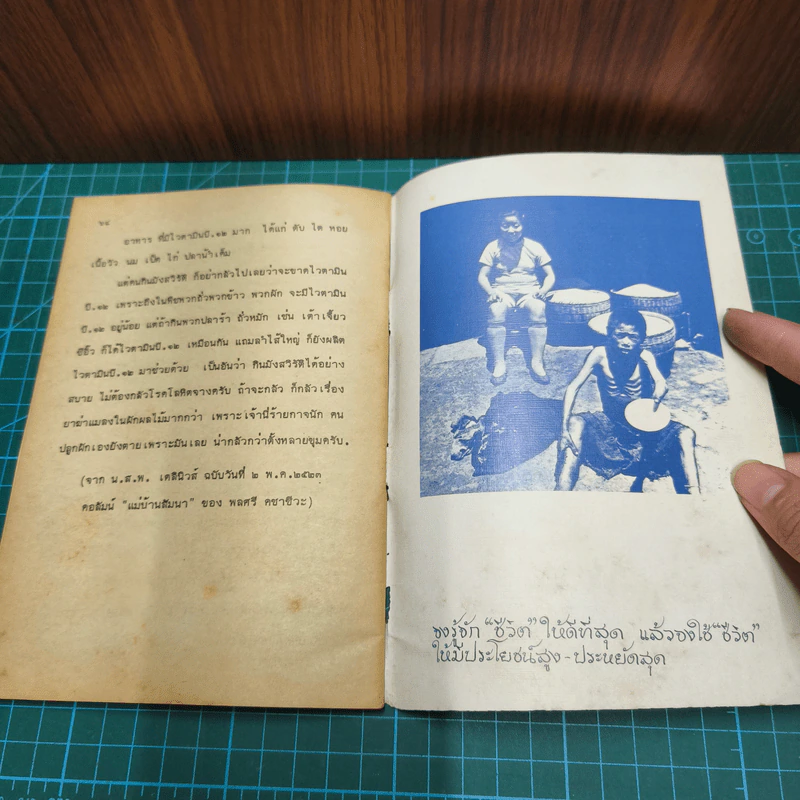 ๖๔
อาหาร ที่มีไวตามินบี.๑๒ มาก ได้แก่ ตับ ไต หอย
เนื้อวัว นม เป็ด ไก่ ปลาน้ำเค็ม
แต่คนกินมังสวิรัติ ก็อย่ากลัวไปเลยว่าจะขาดไวตามิน
บี.๑๒ เพราะถึงในพืชพวกถั่วพวกข้าว พวกผัก จะมีไวตามิน
บี.๑๒ อยู่น้อย แต่ถ้ากินพวกปลาร้า ถั่วหมัก เช่น เต้าเจี้ยว
ซีอิ้ว ก็ได้ไวตามินบี.๑๒ เหมือนกัน แถมลำไส้ใหญ่ ก็ยังผลิต
ไวตามินบี.๑๒ มาช่วยด้วย เป็นอันว่า กินมังสวิรัติได้อย่าง
สบาย ไม่ต้องกลัวโรคโลหิตจางครับ ถ้าจะกลัว ก็กลัวเรื่อง
ยาฆ่าแมลงในผักผลไม้มากกว่า เพราะเจ้านี่ร้ายกาจนัก คน
ปลูกผักเองยังตายเพราะมันเลย น่ากลัวกว่าตั้งหลายขุมครับ.
(จาก น.ส.พ. เดลินิวส์ ฉบับวันที่ ๒ พ.ค.๒๕๒๓
คอลัมน์ "แม่บ้านสัมนา" ของ พลศรี คชาชีวะ)
จงรู้จัก "ชีวิต" ให้ดีที่สุด แล้วจงใช้ "ชีวิต"
ให้มีประโยชน์สูง-ประหยัดสุด